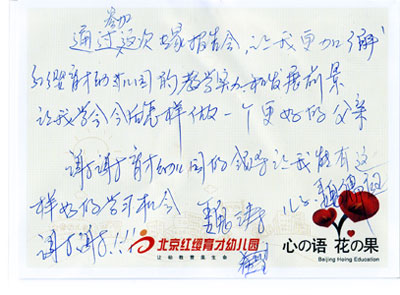 参加
通过这次 报告会,让我更加了解
红缨育才幼儿园的教学实力和发展前景
让我学会今后怎样做一个更好的父亲
谢谢育才幼儿园的领导让我能有这
样好的学习机会 魏涛
谢谢!!!
北京红缨育才幼儿园
让 教育
心の语 花の果
Beijing Hoing Education